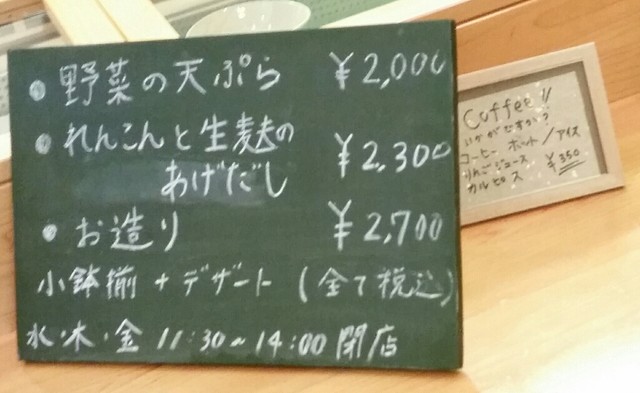 • 野菜の天ぷら ¥2,000
• れんこんと生麩の
あげだし ¥2,300
• お造り ¥2,700
小鉢揃 + デザート (全て税込)
水・木・金 11:30~14:00 閉店
Coffee!!
いかがですか?
コーヒー ホット/アイス
りんごジュース ¥350
カルピス